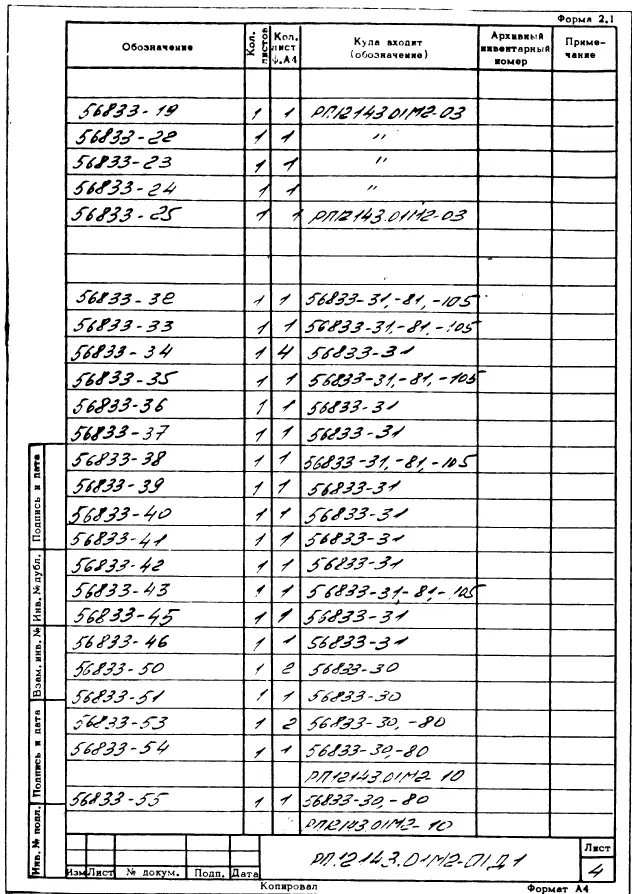 Форма 2.1
Обозначение Кол. листов Кол. лист ф.А4 Куда входит (обозначение) Архивный инвентарный номер Приме-чание
56833-19 1 1 РП12143.01М2-03
56833-22 1 1 "
56833-23 1 1 "
56833-24 1 1 "
56833-25 1 1 РП12143.01М2-03
56833-32 1 1 56833-31,-81,-105
56833-33 1 1 56833-31,-81,-105
56833-34 1 4 56833-31
56833-35 1 1 56833-31,-81,-105
56833-36 1 1 56833-31
56833-37 1 1 56833-31
56833-38 1 1 56833-31,-81,-105
56833-39 1 1 56833-31
56833-40 1 1 56833-31
56833-41 1 1 56833-31
56833-42 1 1 56833-31
56833-43 1 1 56833-31,-81,-105
56833-45 1 1 56833-31
56833-46 1 1 56833-31
56833-50 1 2 56833-30
56833-51 1 1 56833-30
56833-53 1 2 56833-30,-80
56833-54 1 1 56833-30,-80
РП12143.01М2-10
56833-55 1 1 56833-30,-80
РП12143.01М2-10
Подпись и дата
Инв. № дубл.
Взам. инв. №
Подпись и дата
Инв. № подл.
Изм Лист № докум. Подп. Дата
РП.12143.01М2-01Д1
Лист
4
Копировал Формат А4